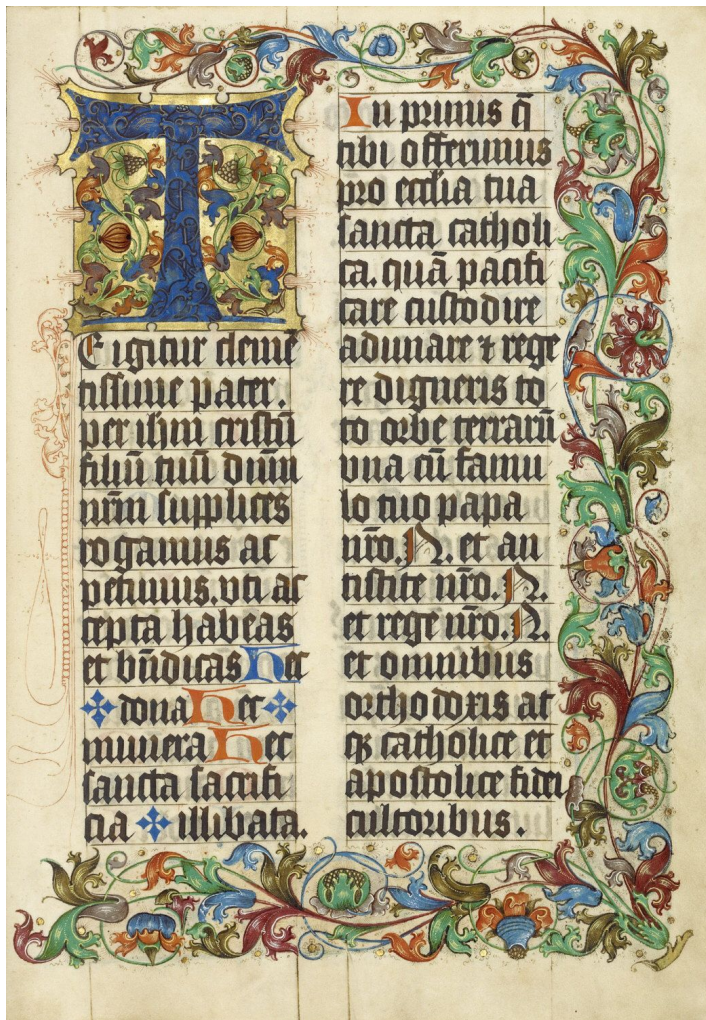 T
E igitur cleme
tissime pater.
per ihm cristū
filiū tuū dnm
nrm supplices
rogamus ac
petimus. vti ac
cepta habeas
et bn̄dicas Hec
✤ dona Hec ✤
munera Hec
sancta sacrifi
cia ✤ illibata.
In primis q̄
tibi offerimus
pro ecclia tua
sancta catholi
ca. quā pacifi
care custodire
adunare ⁊ rege
re digneris to
to orbe terrarū
vna cū famu
lo tuo papa
nr̄o. N. et an
tistite nr̄o. N.
et rege nr̄o. N.
et omnibus
orthodoxis at
qꝫ catholice et
apostolice fidei
cultoribus.